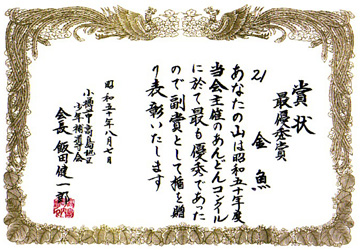 賞状
最優秀賞
21 金魚
あなたの山は昭和五十年度
当会主催のあんどんコンクール
に於て最も優秀であった
ので副賞として楯を贈
り表彰いたします
昭和五十年八月七日
小樽市
少年補導会
会長 飯田健一郎